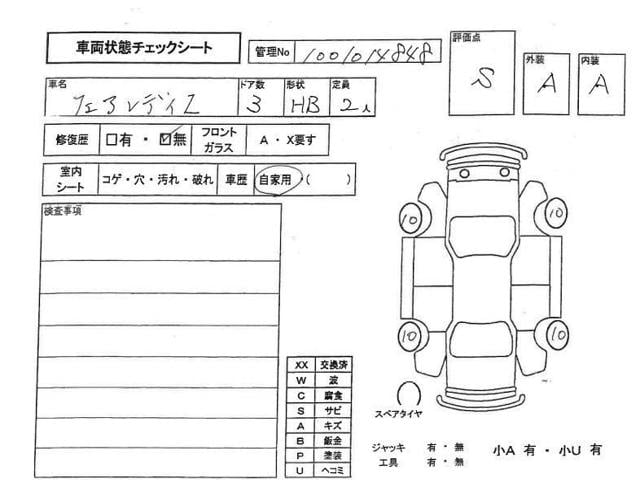 車両状態チェックシート
管理No 1001014848
評価点
S
外装
A
内装
A
車名
フェアレディZ
ドア数
3
形状
HB
定員
2人
修復歴
□有・☑無
フロントガラス
A・X要す
室内シート
コゲ・穴・汚れ・破れ
車歴
自家用・( )
検査事項
10
10
10
10
XX 交換済
W 波
C 腐食
S サビ
A キズ
B 鈑金
P 塗装
U ヘコミ
スペアタイヤ
ジャッキ 有・無
工具 有・無
小A 有・小U 有